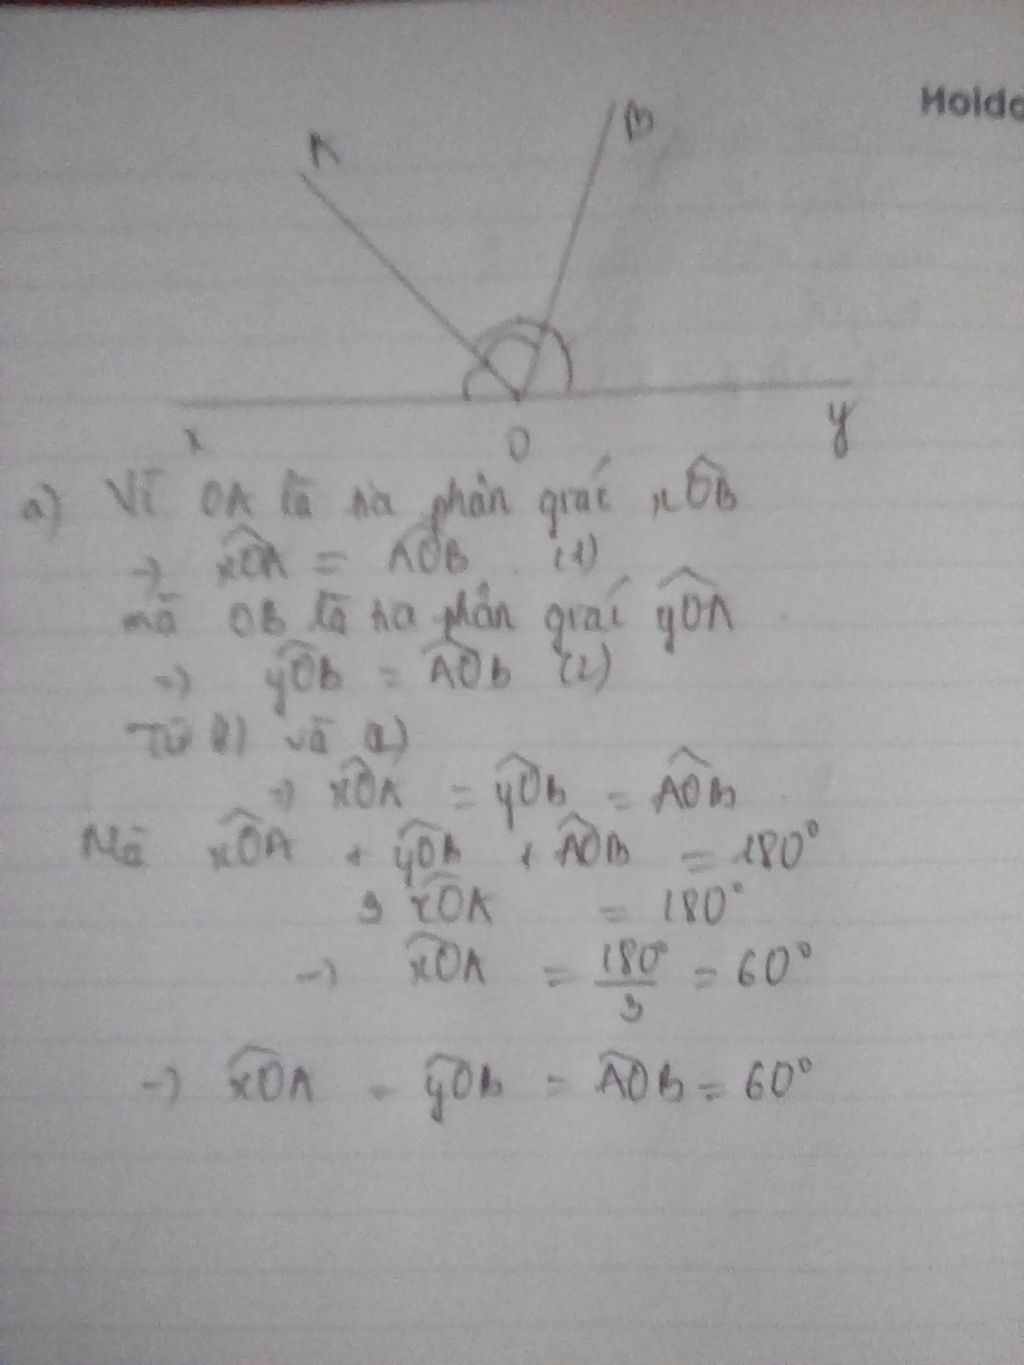 Holde
A
B
x
O
y
a) Vì OA là tia phân giác xÔB
=> xÔA = AÔB (1)
mà OB là tia phân giác yÔA
=> yÔB = AÔB (2)
Từ (1) và (2)
=> xÔA = yÔB = AÔB
Mà xÔA + yÔB + AÔB = 180°
3 xÔA = 180°
=> xÔA = 180°/3 = 60°
=> xÔA = yÔB = AÔB = 60°